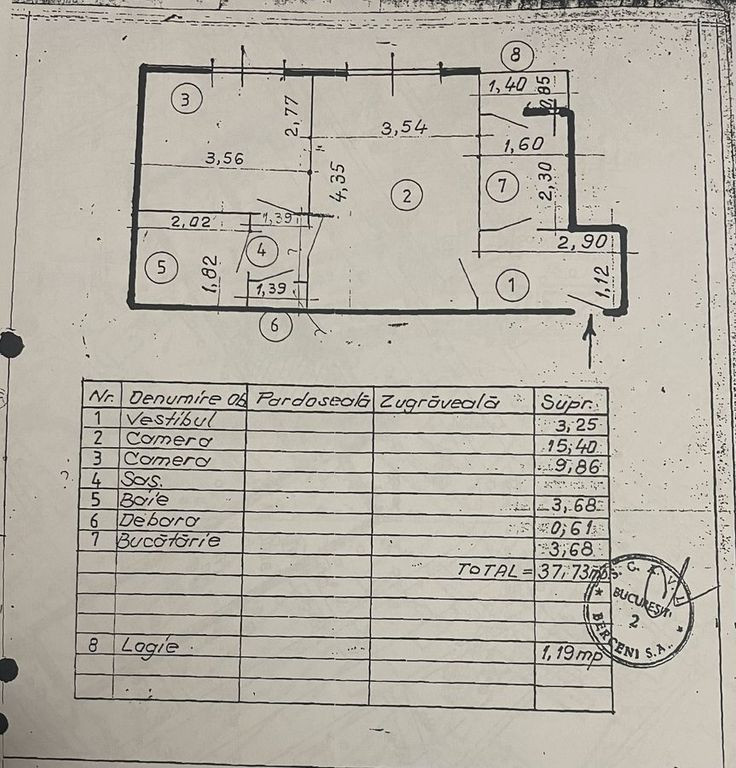 8
1,40
0,85
3
2,77
3,54
1,60
3,56
4,35
2
7
2,30
2,02
1,39
4
2,90
5
1,82
1,39
1
1,12
6
Nr. Denumire Ob. Pardoseală Zugrăveală Supr.
1 Vestibul 3,25
2 Camera 15,40
3 Camera 9,86
4 Sas.
5 Baie 3,68
6 Debara 0,61
7 Bucătărie 3,68
TOTAL = 37,73mp
8 Logie 1,19mp
BUCUREȘTI
2
BERCENI S.A.